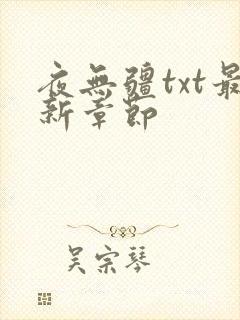 夜無疆txt最
新章節
吴宗琴